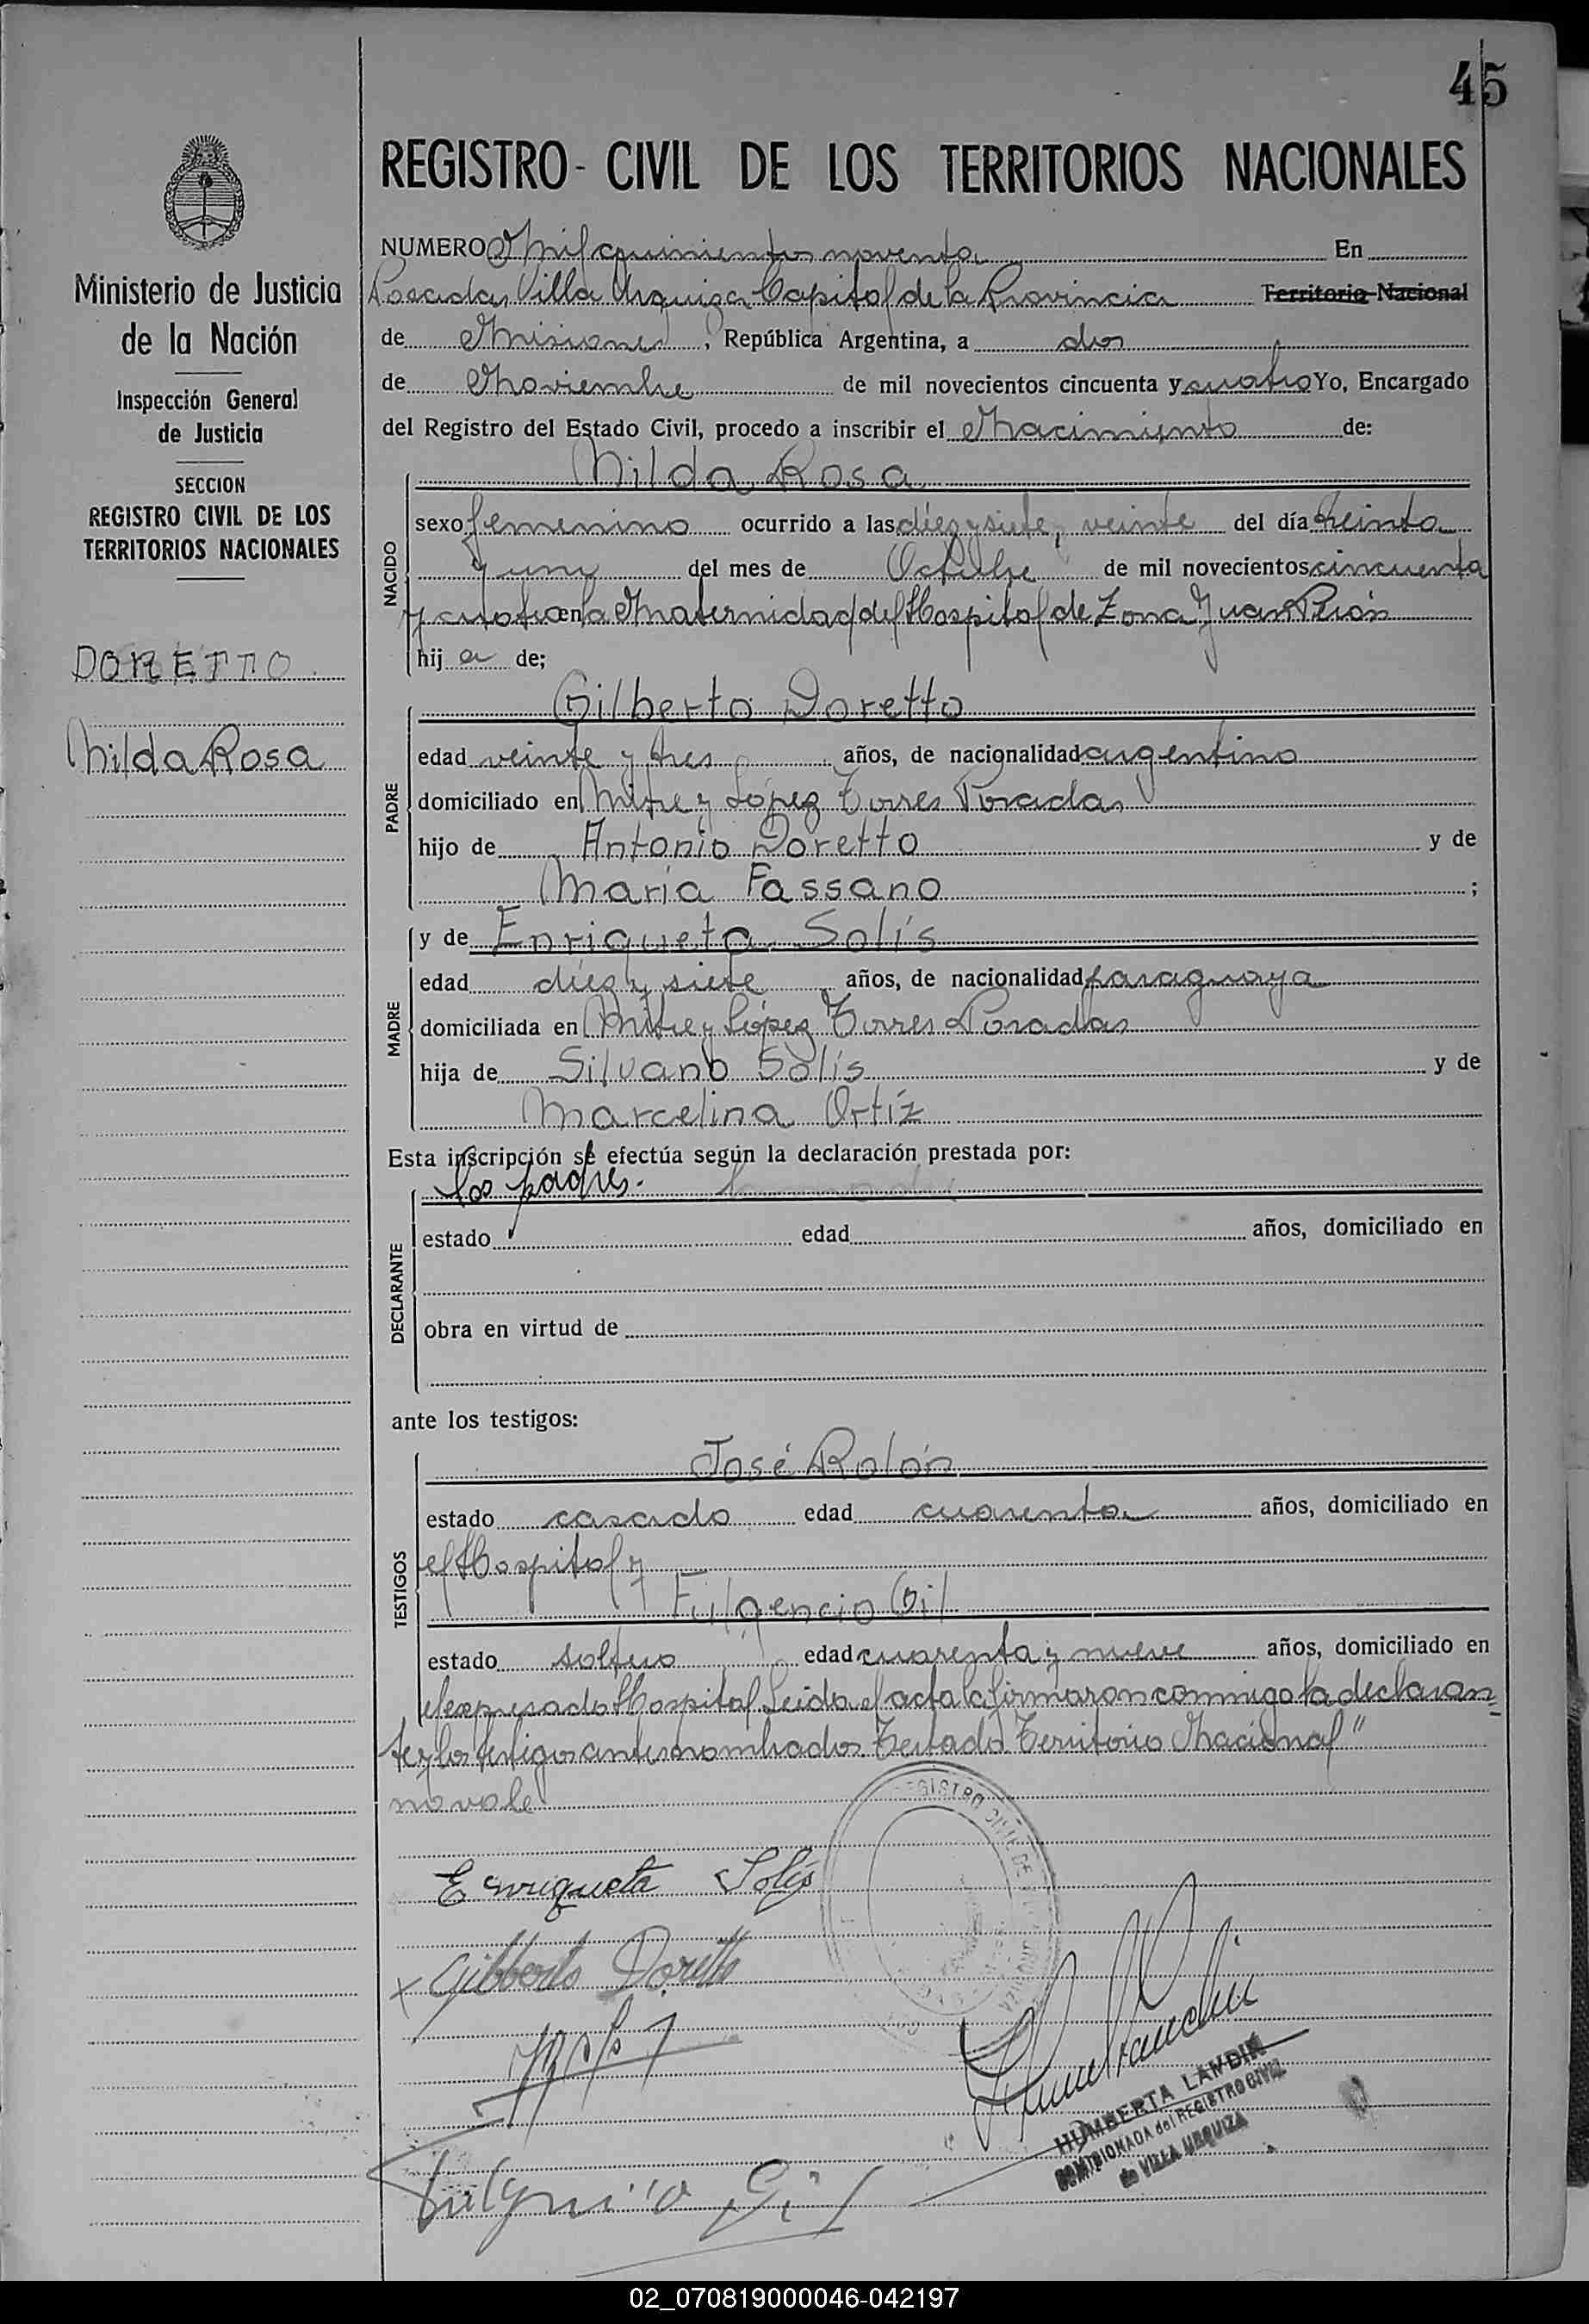 45
REGISTRO-CIVIL DE LOS TERRITORIOS NACIONALES
Ministerio de Justicia
de la Nación
Inspección General
de Justicia
SECCION
REGISTRO CIVIL DE LOS
TERRITORIOS NACIONALES
DORETTO
Nilda Rosa
NUMERO Mil quinientos noventa En
Posadas Villa Urquiza Capital de la Provincia Territorio Nacional
de Misiones, República Argentina, a dos
de Noviembre de mil novecientos cincuenta y cuatro Yo, Encargado
del Registro del Estado Civil, procedo a inscribir el Nacimiento de:
Nilda Rosa
NACIDO
sexo femenino ocurrido a las diez y siete, veinte del día treinta
y uno del mes de Octubre de mil novecientos cincuenta
y cuatro en la Maternidad del Hospital de Zona Juan Perón
hija de;
PADRE
Gilberto Doretto
edad veinte y tres años, de nacionalidad argentino
domiciliado en Mitre y López Torres Posadas
hijo de Antonio Doretto y de
Maria Fassano ;
MADRE
y de Enriqueta Solís
edad diez y siete años, de nacionalidad paraguaya
domiciliada en Mitre y López Torres Posadas
hija de Silvano Solís y de
Marcelina Ortíz
Esta inscripción se efectúa según la declaración prestada por:
DECLARANTE
los padres.
estado edad años, domiciliado en
obra en virtud de
ante los testigos:
TESTIGOS
José Rolón
estado casado edad cuarenta años, domiciliado en
el Hospital y
Fulgencio Gil
estado soltero edad cuarenta y nueve años, domiciliado en
el expresado Hospital. Leida el acta la firmaron conmigo la declaran=
te y los testigos antes nombrados. Testado Territorio Nacional"
no vale
Enriqueta Solís
x Gilberto Doretto
Fulgencio Gil
REGISTRO CIVIL DE
HUMBERTA LANDIN
COMISIONADA del REGISTRO CIVIL
de VILLA URQUIZA
02_070819000046-042197